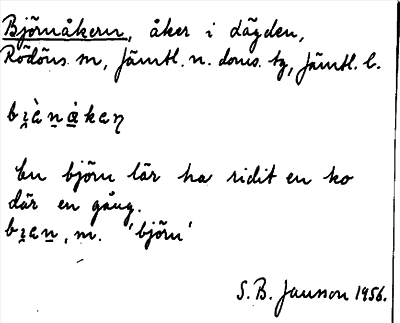 Björnåkern, åker i Lägden,
Rödöns sn, Jämtl. n. doms. tg, Jämtl. l.
En björn lär ha ridit en ko
där en gång.
m. 'björn'
S. B. Jansson 1956.